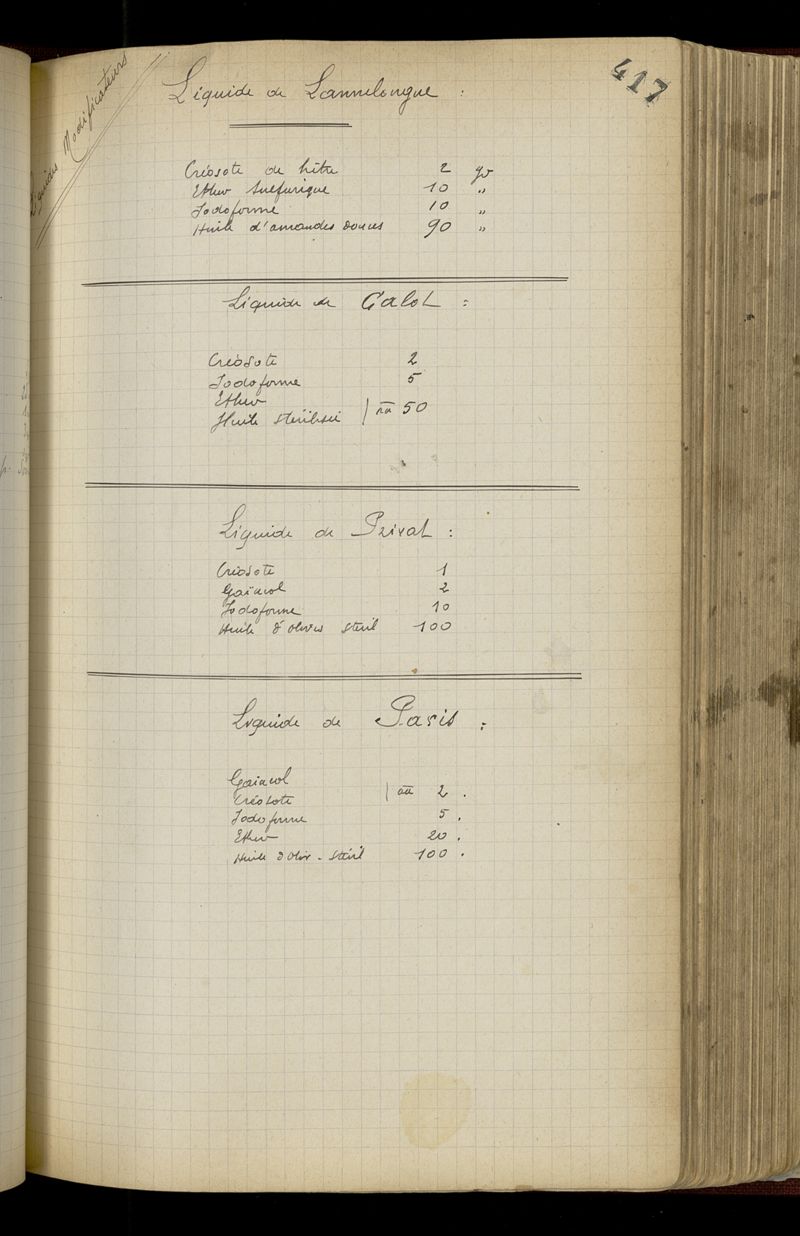 417
Liquides Modificateurs
Liquide de Lannelongue :
Créosote de hêtre 2 gr
Ether Sulfurique 10 "
Iodoforme 10 "
Huile d'amandes douces 90 "
Liquide de Calot :
Créosote 2
Iodoforme 5
Ether
Huile stérilisée } āā 50
Liquide de Privat :
Créosote 1
Gaïacol 2
Iodoforme 10
Huile d'olives steril 100
Liquide de Paris :
Gaïacol
Créosote } āā 2 .
Iodoforme 5 .
Ether 20 .
Huile d'oliv - stéril 100 .